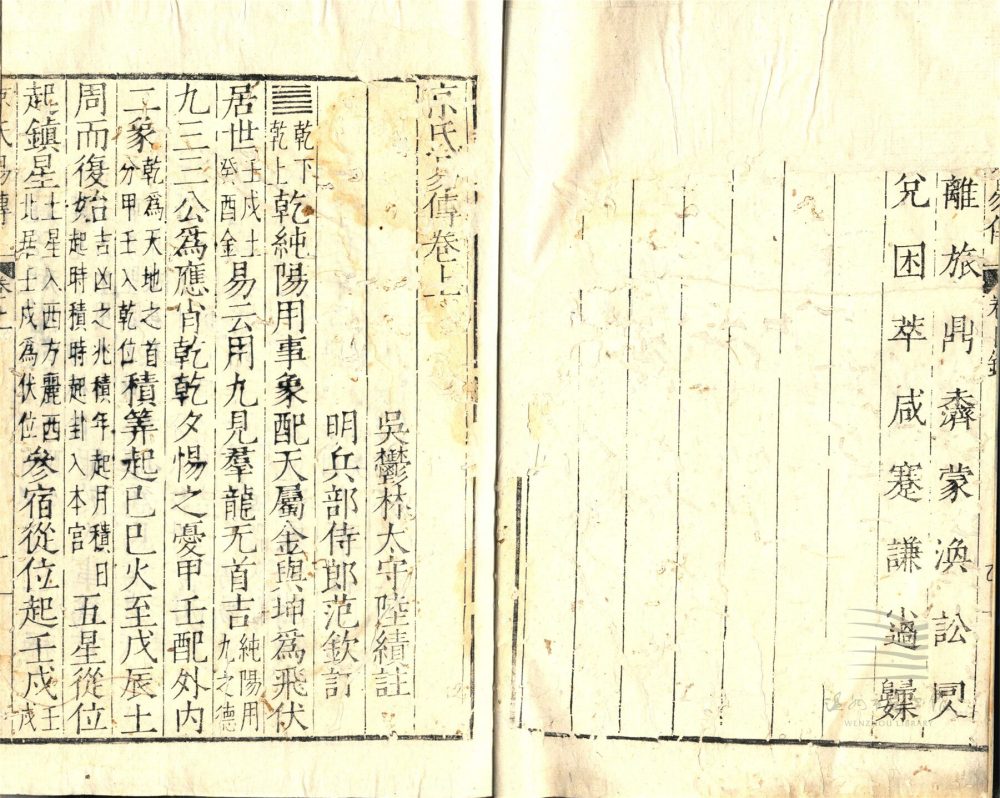 易傳 卷目錄
離旅鼎濟蒙渙訟同人
兌困萃咸蹇謙小過歸妹
京氏易傳卷上
吳鬱林太守陸績註
明兵部侍郎范欽訂
䷀乾下乾上乾純陽用事象配天屬金與坤爲飛伏
居世壬戌土癸酉金易云用九見羣龍无首吉純陽用九之德
九三三公爲應肖乾乾夕惕之憂甲壬配外內
二象乾爲天地之首分甲壬入乾位積筭起巳巳火至戊辰土
周而復始吉凶之兆積年起月積日起時積時起卦入本宮五星從位
起鎮星土星入西方麗西北居壬戌爲伏位參宿從位起壬戌壬戌
京氏易傳 卷之上
WENZHOU LIBRARY